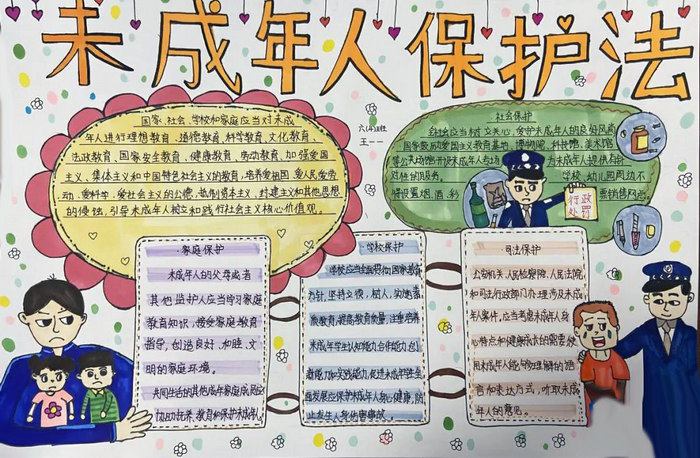 未成年人保护法
国家、社会、学校和家庭应当对未成
年人进行理想教育、道德教育、科学教育、文化教育、
法政教育、国家安全教育、健康教育、劳动教育,加强爱国
主义、集体主义和中国特色社会主义的教育,培养爱祖国、爱人民、爱劳
动、爱科学、爱社会主义的公德,抵制资本主义、封建主义和其他思想
的侵蚀,引导未成年人树立和践行社会主义核心价值观。
六(4)班
王一一
社会保护
全社会应当树立关心、爱护未成年人的良好风尚
国家鼓励爱国主义教育基地、博物馆、科技馆、美术馆
等公共场馆开设未成年人专场
为未成年人提供有针
对性的服务。
学校、幼儿园周边不
得设置烟、酒、彩
票销售网点
行政
处罚
·家庭保护
未成年人的父母或者
其他监护人应当学习家庭
教育知识,接受家庭教育
指导,创造良好、和睦、文
明的家庭环境。
共同生活的其他成年家庭成员应
协助抚养、教育和保护未成年人
·学校保护
学校应当全面贯彻国家教育
方针,坚持立德,树人,实施素
质教育,提高教育质量,注重培养
未成年学生认知能力合作能力创
新能力和实践能力,促进未成年学生全
防止发生人身伤害事故。
·司法保护
公安机关、人民检察院、人民法院
和司法行政部门办理涉及未成
年人案件,应当考虑未成年人身
心特点和健康成长的需要使
用未成年人能够理解的语
言和表达方式,听取未成
年人的意见。